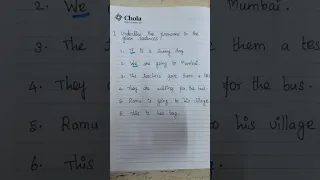 Chola
I. Underline the pronouns in the given sentences:
1. It is a sunny day.
2. We are going to Mumbai.
3. The teachers gave them a tes
4. They are waiting for the bus.
5. Ramu is going to his village
6. This is her bag.
2. We
Mumbai.
3. The
them a tes
4. They
the bus.
5. Ramu
to his village
6. This